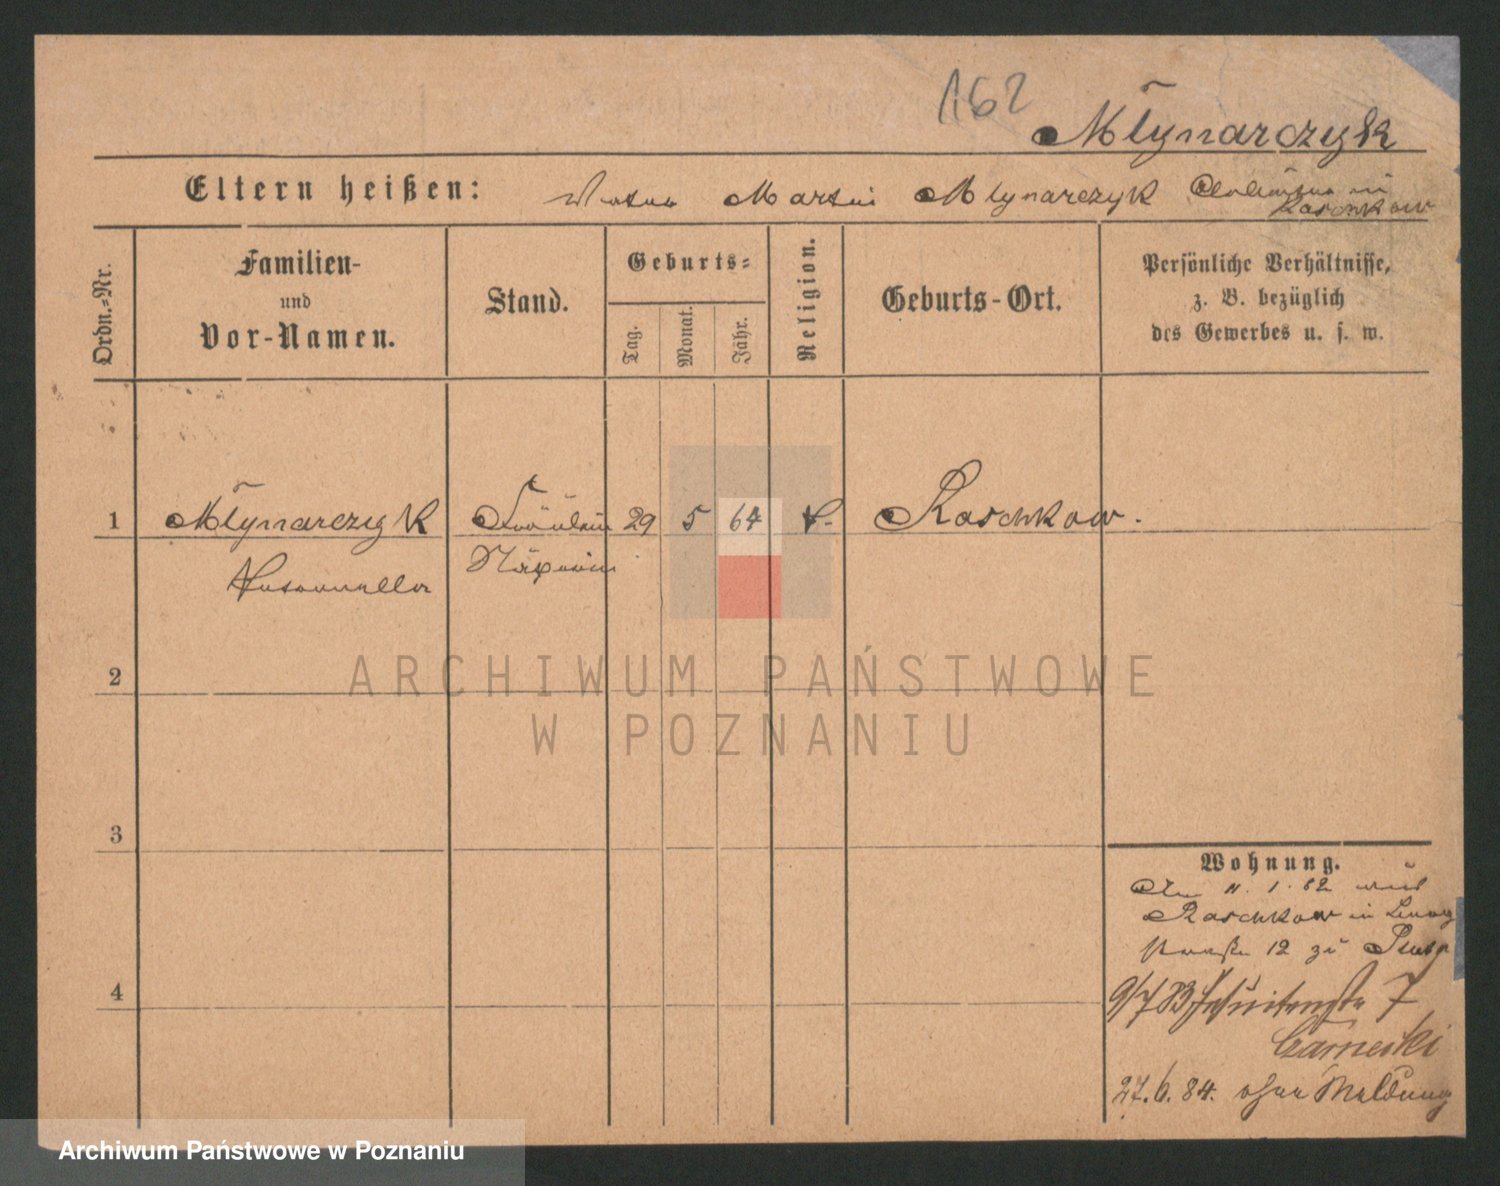 162
Młynarczyk
Eltern heißen: Vater Martin Młynarczyk in
Raschkow
Ordn.-Nr.
Familien-
und
Vor-Namen.
Stand.
Geburts-
Tag.
Monat.
Jahr.
Religion.
Geburts-Ort.
Persönliche Verhältnisse,
z. B. bezüglich
des Gewerbes u. s. w.
1 Młynarczyk Fräulein 29 5 64 Raschkow.
Petronella
2
3
4
Wohnung.
11. 1. 82
Raschkow in
straße 12 zu
9/7 83 Jesuitenstr 7
27.6.84. ohne Meldung
ARCHIWUM PAŃSTWOWE
W POZNANIU
Archiwum Państwowe w Poznaniu